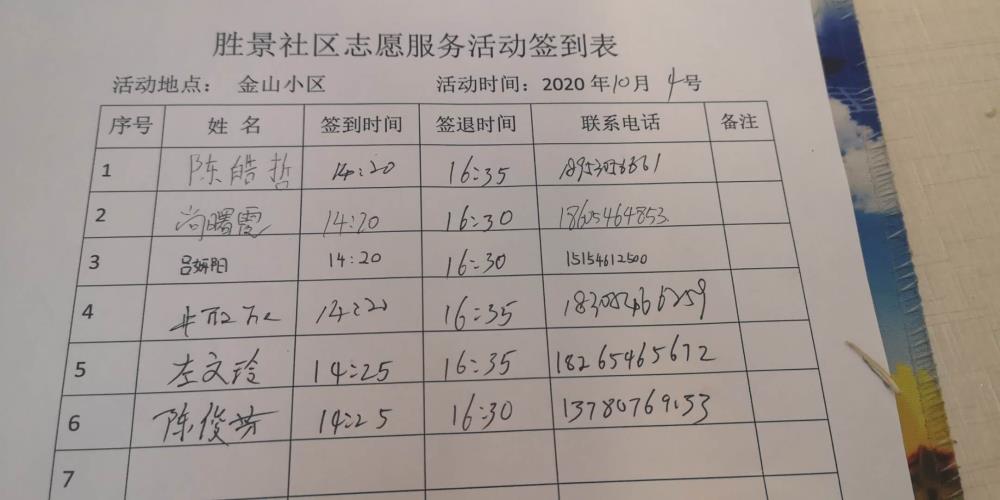 胜景社区志愿服务活动签到表
活动地点： 金山小区 活动时间：2020年10月4号
序号 姓名 签到时间 签退时间 联系电话 备注
1 陈皓哲 14:20 16:35
2 尚曙霞 14:20 16:30 18605464853.
3 吕妍阳 14:20 16:30 15154612500
4 14:20 16:35
5 左文玲 14:25 16:35 18265465672
6 陈俊芳 14:25 16:30
7